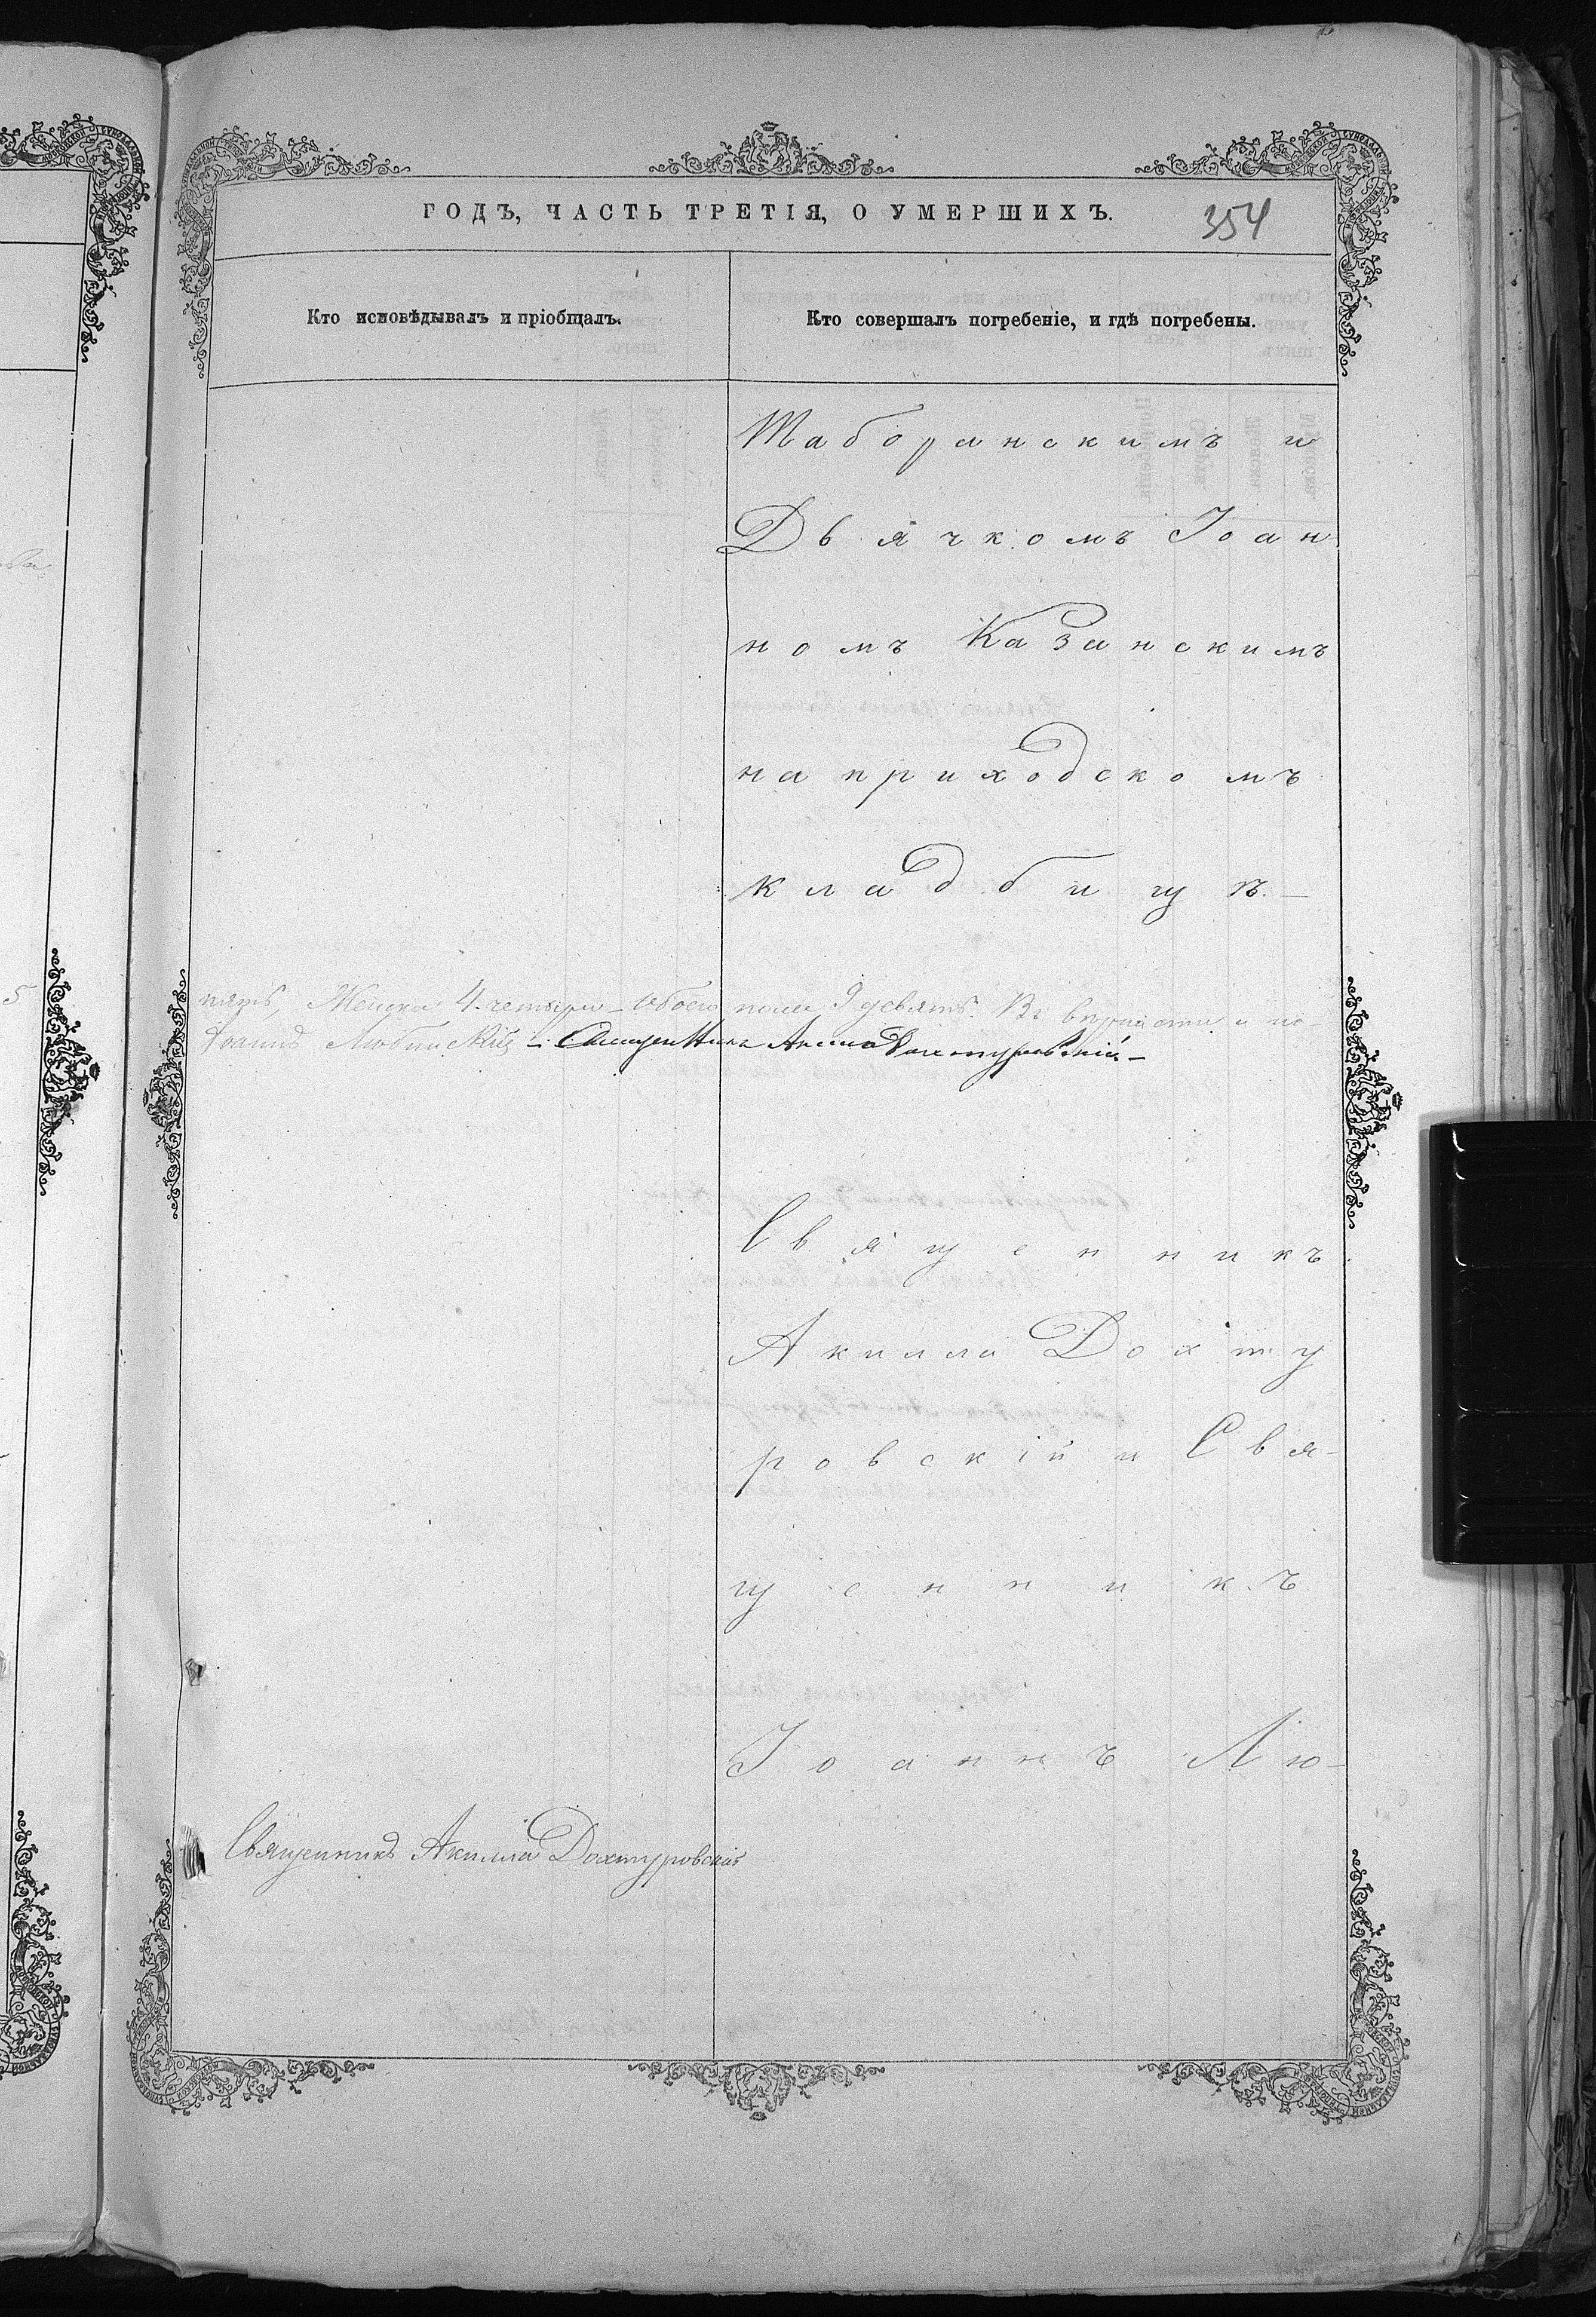 ГОДЪ, ЧАСТЬ ТРЕТІЯ, О УМЕРШИХЪ.
354
Кто исповѣдывалъ и пріобщалъ.
Кто совершалъ погребеніе, и гдѣ погребены.
Таборанскимъ и
Дьячкомъ Іоан
номъ Казанскимъ
на приходскомъ
кладбищѣ. —
пять, Женска 4 четыре — Обоего пола 9 девять. Въ вѣрности и по
Іоаннъ Любимскій — Священникъ Акила Дохтуровскій —
Священникъ
Акилла Дохту
ровскій и Свя-
щенникъ
Іоаннъ Лю-
Священникъ Акилла Дохтуровскій